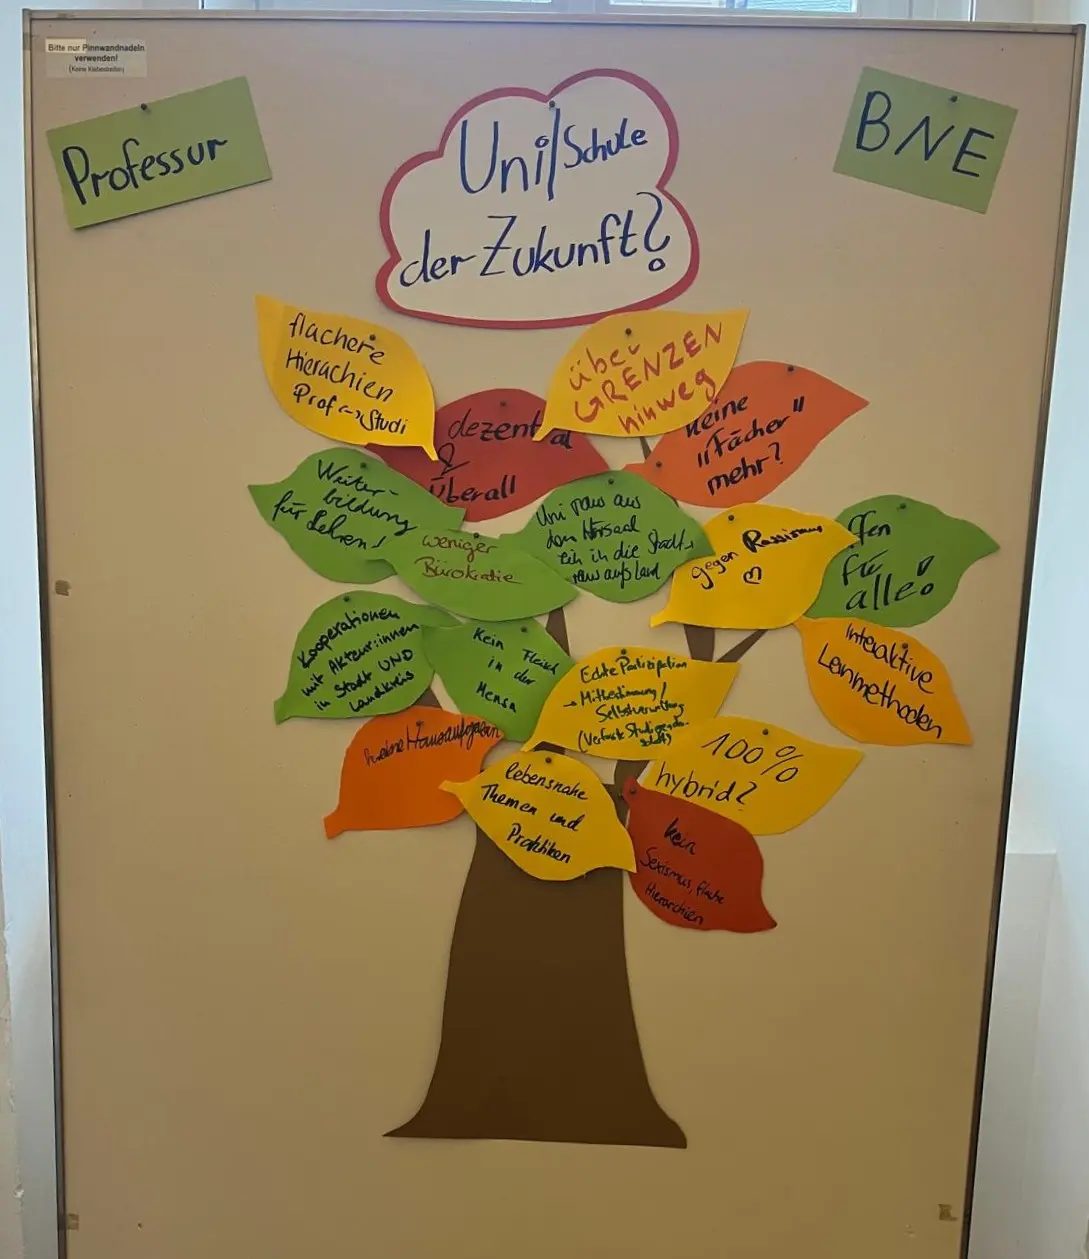 Bitte nur Pinnwandnadeln
verwenden!
(Keine Klebestreifen)
Professur
Uni/Schule
der Zukunft?
BNE
flachere
Hierachien
Prof <-> Studi
über
GRENZEN
hinweg
dezentral
&
überall
keine
"Fächer"
mehr?
Weiter-
bildung
für Lehren!
weniger
Bürokratie
Uni raus aus
dem Hörsaal
in die Stadt
raus aufs Land
gegen Rassismus
♡
ffen
für
alle!
Kooperationen
mit Akteur:innen
in Stadt UND
Landkreis
Kein Fleisch
in der
Mensa
Echte Partizipation
→ Mitbestimmung/
Selbstverwaltung
(Verfasste Studierenden-
schaft)
Interaktive
Lernmethoden
keine Hausaufgaben
lebensnahe
Themen und
Praktiken
100%
hybrid?
kein
Sexismus, flache
Hierarchien